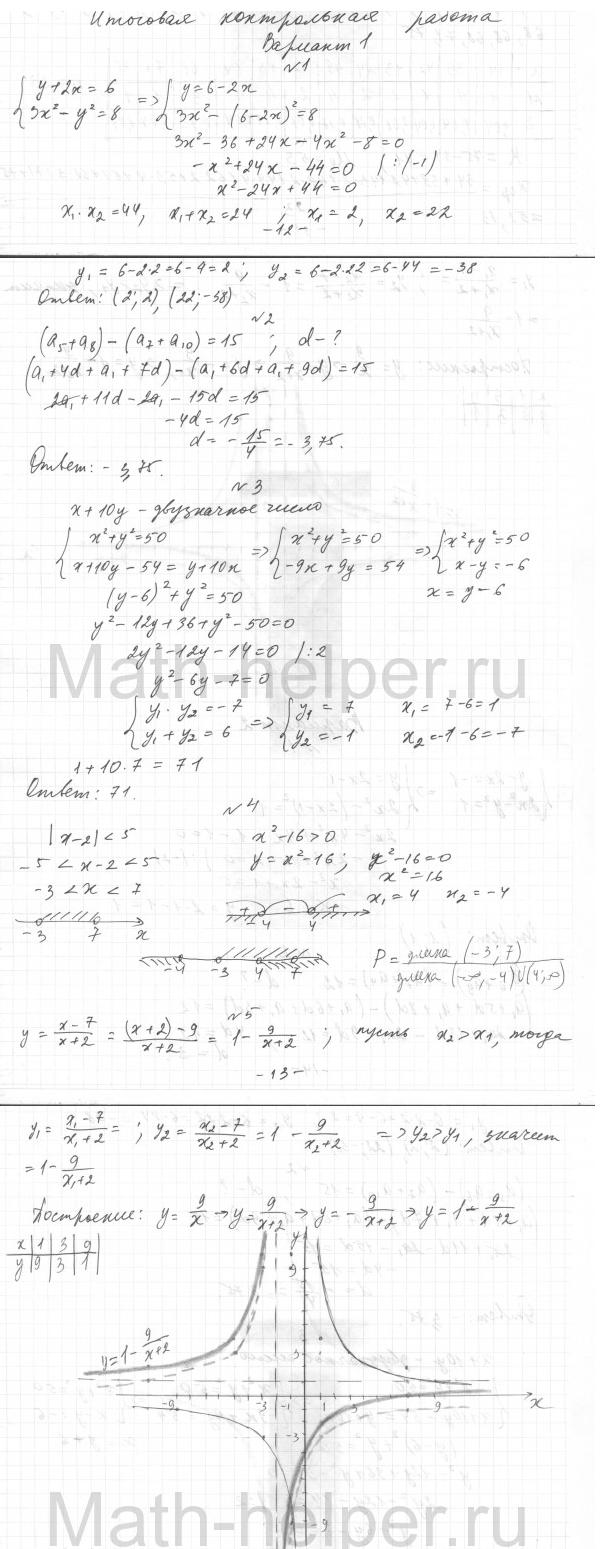 Итоговая контрольная работа
Вариант 1
№1
{ y+2x=6 => { y=6-2x
{ 3x²-y²=8 { 3x²-(6-2x)²=8
3x²-36+24x-4x²-8=0
-x²+24x-44=0 /:(-1)
x²-24x+44=0
x₁·x₂=44, x₁+x₂=24 ; x₁=2, x₂=22
-12-
y₁=6-2·2=6-4=2; y₂=6-2·22=6-44=-38
Ответ: (2;2), (22;-38)
№2
(a₅+a₈)-(a₇+a₁₀)=15 ; d-?
(a₁+4d+a₁+7d)-(a₁+6d+a₁+9d)=15
2a₁+11d-2a₁-15d=15
-4d=15
d=-15/4=-3,75.
Ответ: -3,75.
№3
x+10y - двузначное число
{ x²+y²=50 => { x²+y²=50 => { x²+y²=50
{ x+10y-54=y+10x { -9x+9y=54 { x-y=-6
(y-6)²+y²=50 x=y-6
y²-12y+36+y²-50=0
2y²-12y-14=0 /:2
Math-helper.ru
y²-6y-7=0
{ y₁·y₂=-7 => { y₁=7 x₁=7-6=1
{ y₁+y₂=6 { y₂=-1 x₂=-1-6=-7
1+10·7=71
Ответ: 71.
№4
|x-2|<5 x²-16>0
-5<x-2<5 y=x²-16; x²-16=0
x²=16
-3<x<7 x₁=4 x₂=-4
+ - +
-3 7 x -4 4
-4 -3 4 7 P=длина (-3;7)/длина (-∞,-4)∪(4;∞)
№5
y=(x-7)/(x+2)=((x+2)-9)/(x+2)=1-9/(x+2) ; пусть x₂>x₁, тогда
-13-
y₁=(x₁-7)/(x₁+2)= ; y₂=(x₂-7)/(x₂+2)=1-9/(x₂+2) => y₂>y₁, значит
=1-9/(x₁+2)
Построение: y=9/x → y=9/(x+2) → y=-9/(x+2) → y=1-9/(x+2)
x|1|3|9
y|9|3|1
y
9
y=1-9/(x+2)
3
-9 -3 -1 1 3 9 x
-3
-9
Math-helper.ru